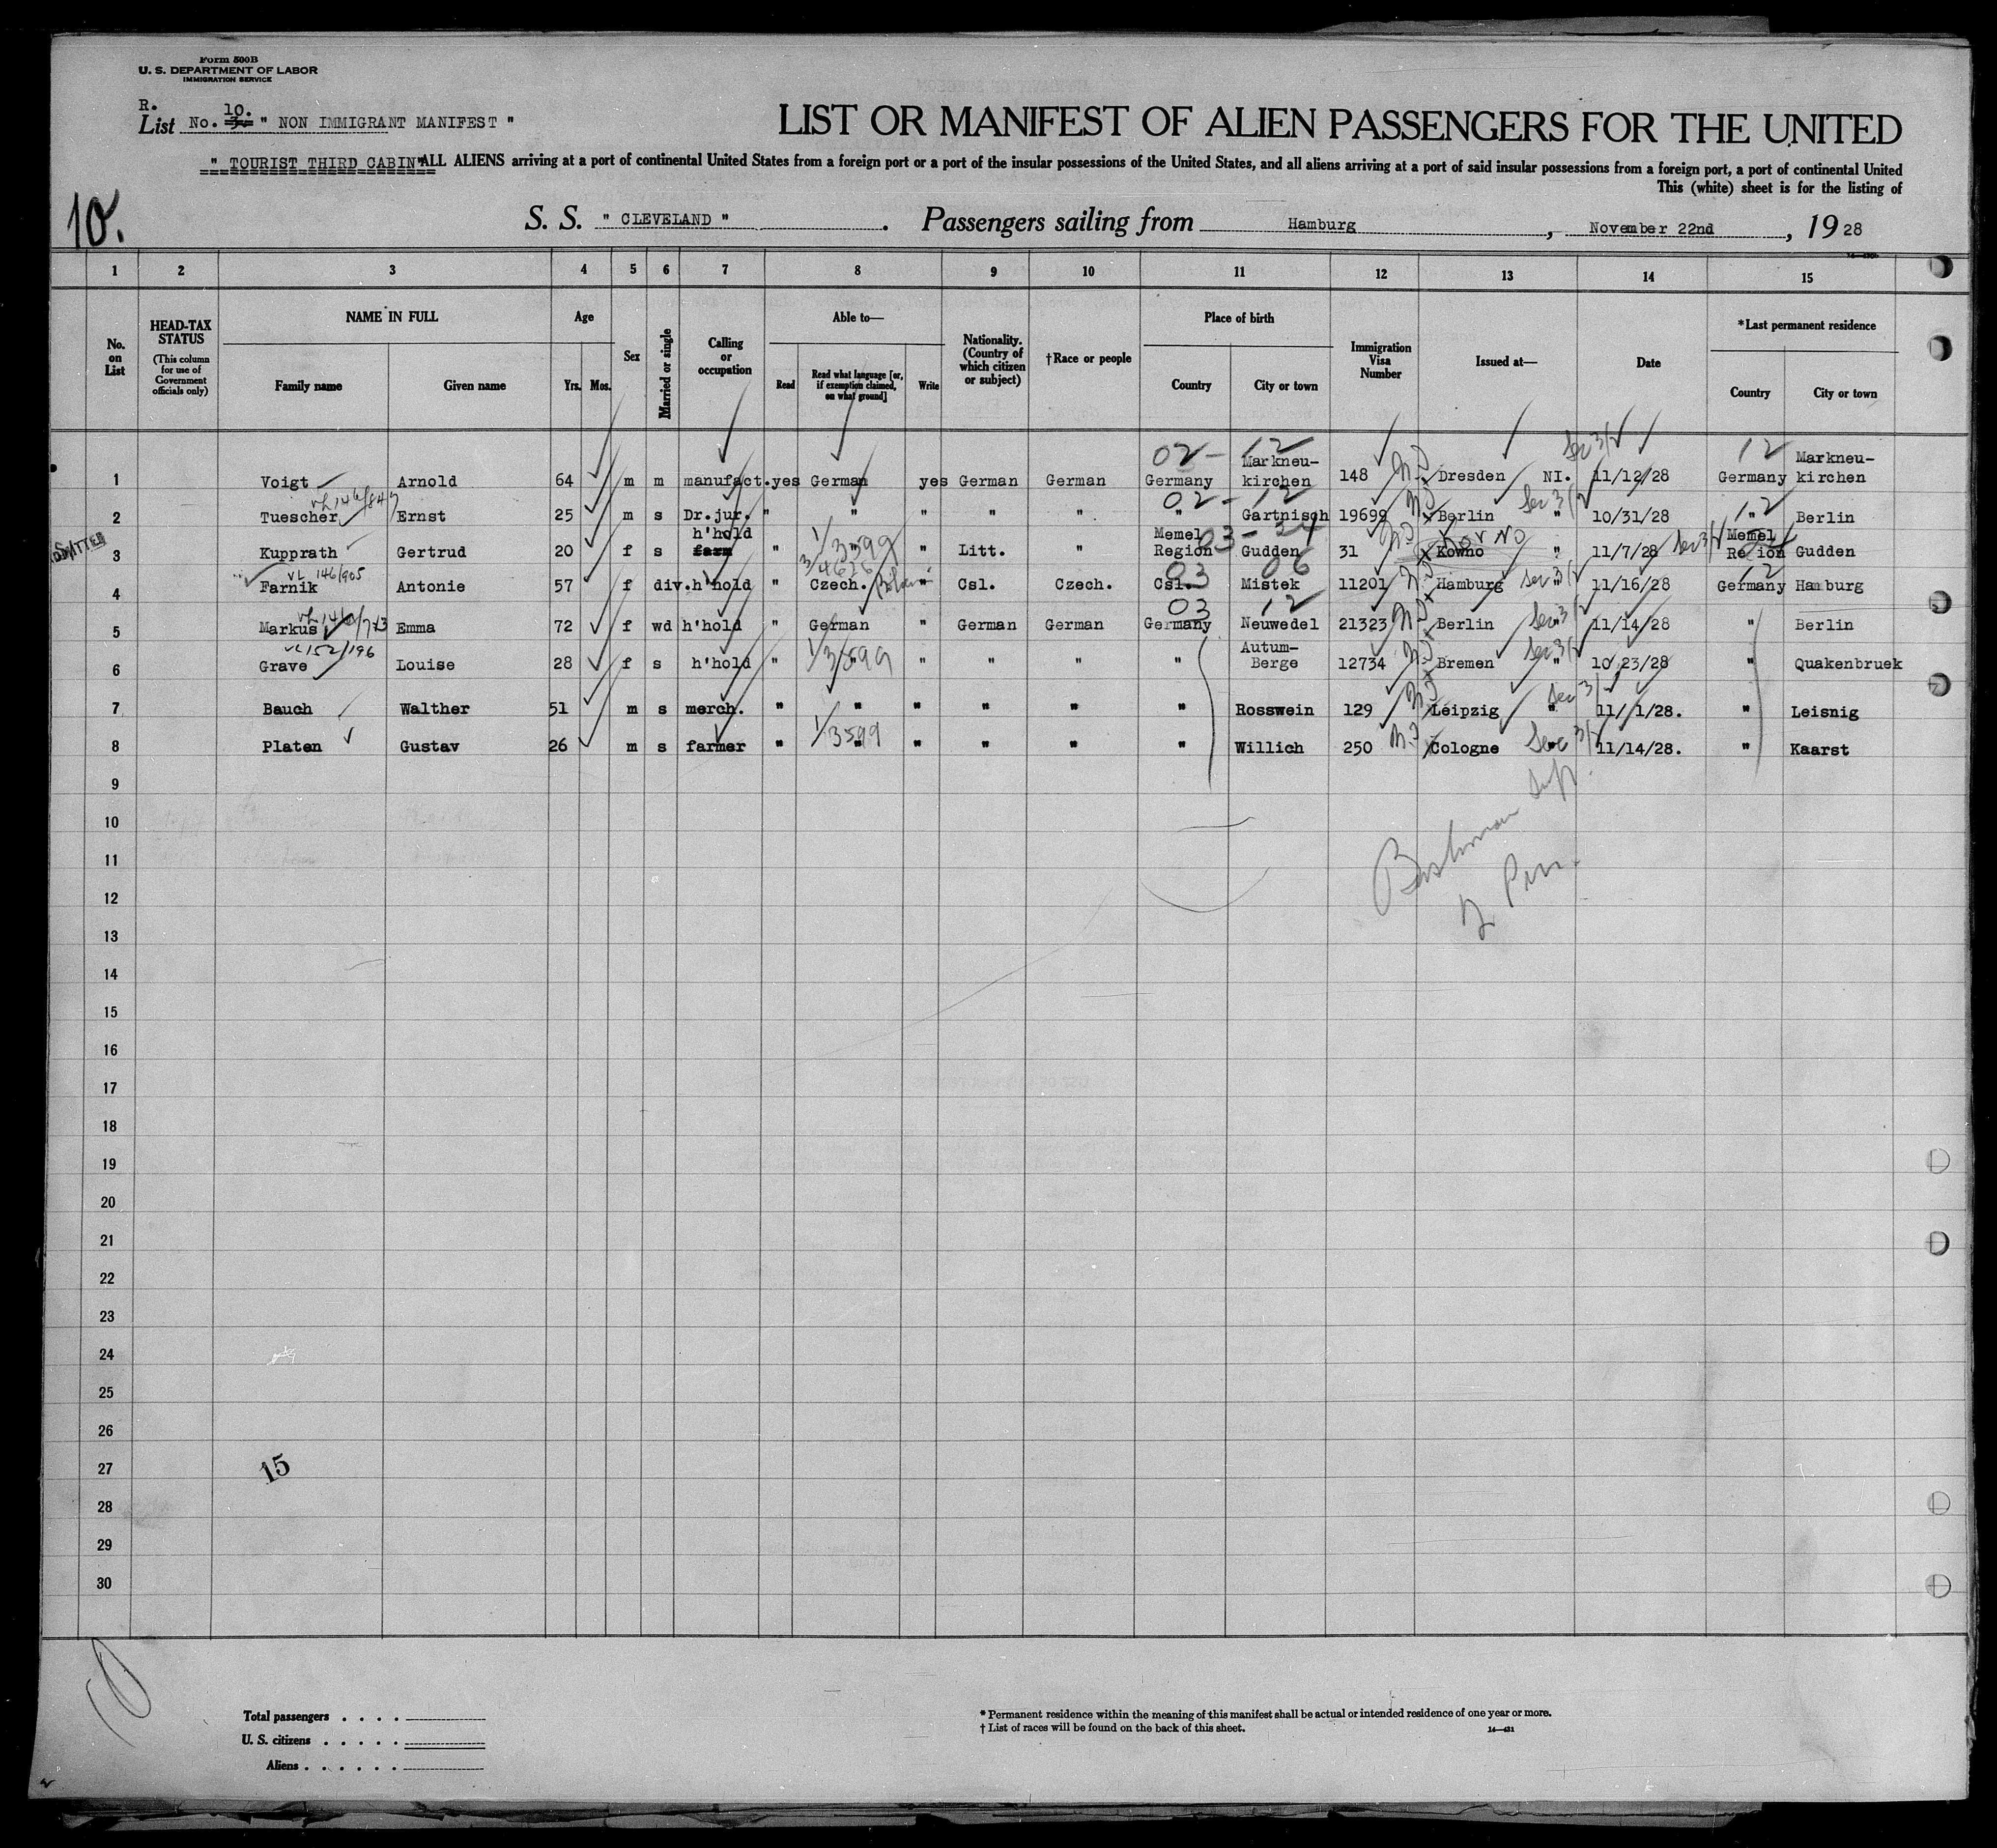 Form 500B
U. S. DEPARTMENT OF LABOR
IMMIGRATION SERVICE
R.
List No. 10. 3. " NON IMMIGRANT MANIFEST "
LIST OR MANIFEST OF ALIEN PASSENGERS FOR THE UNITED
" TOURIST THIRD CABIN" ALL ALIENS arriving at a port of continental United States from a foreign port or a port of the insular possessions of the United States, and all aliens arriving at a port of said insular possessions from a foreign port, a port of continental United
This (white) sheet is for the listing of
10.
S. S. " CLEVELAND " . Passengers sailing from Hamburg , November 22nd , 1928
1 2 3 4 5 6 7 8 9 10 11 12 13 14 15
No. on List
HEAD-TAX STATUS
(This column for use of Government officials only)
NAME IN FULL
Family name Given name
Age
Yrs. Mos.
Sex
Married or single
Calling or occupation
Able to—
Read
Read what language [or, if exemption claimed, on what ground]
Write
Nationality. (Country of which citizen or subject)
†Race or people
Place of birth
Country City or town
Immigration Visa Number
Issued at—
Date
*Last permanent residence
Country City or town
02 - 12 Sec 3/2 12
1 Voigt Arnold 64 m m manufact. yes German yes German German Germany Markneu-kirchen 148 Dresden NI. 11/12/28 Germany Markneu-kirchen
02 - 12 Sec 3/2 12
2 Tuescher Ernst 25 m s Dr.jur. " " " " " " Gartnisch 19699 Berlin " 10/31/28 " Berlin
ADMITTED
1/3599 03 - 34 Kovno Sec 3/2
3 Kupprath Gertrud 20 f s h'hold farm " " " Litt. " Memel Region Gudden 31 Kowno " 11/7/28 Memel Re ion Gudden
VL 146/905 03 06 Sec 3/2 12
4 Farnik Antonie 57 f div. h'hold " Czech. " Csl. Czech. Csl. Mistek 11201 Hamburg " 11/16/28 Germany Hamburg
03 12 Sec 3/2
5 Markus Emma 72 f wd h'hold " German " German German Germany Neuwedel 21323 Berlin " 11/14/28 " Berlin
VL 152/196 1/3599 Sec 3/2
6 Grave Louise 28 f s h'hold " " " " " " Autum-Berge 12734 Bremen " 10/23/28 " Quakenbruek
Sec 3/2
7 Bauch Walther 51 m s merch. " " " " " " Rosswein 129 Leipzig " 11/ 1/28. " Leisnig
1/3599 Sec 3/2
8 Platen Gustav 26 m s farmer " " " " " " Willich 250 Cologne " 11/14/28. " Kaarst
9
10
11
12
13
14
15
16
17
18
19
20
21
22
23
24
25
26
27
15
28
29
30
10
Total passengers . . . .
U. S. citizens . . . . .
Aliens . . . . . .
* Permanent residence within the meaning of this manifest shall be actual or intended residence of one year or more.
† List of races will be found on the back of this sheet.
14—431